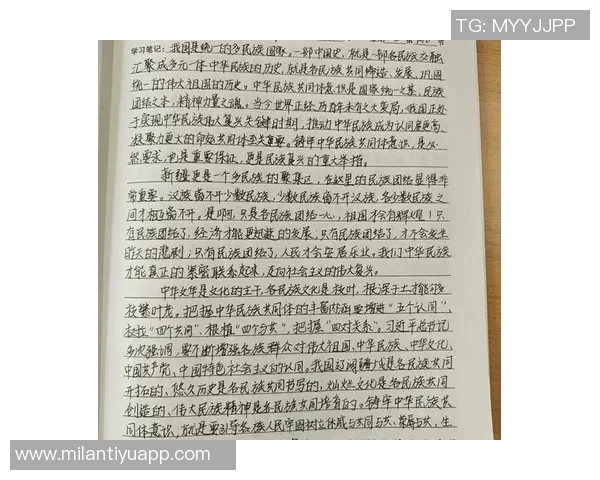 TG: MYYJJPP
学习笔记：我国是统一的多民族国家。一部中国史，就是一部各民族交融
汇聚成多元一体中华民族的历史，就是各民族共同缔造、发展、巩固
统一的伟大祖国的历史。中华民族共同体意识是国家统一之基、民族
团结之本、精神力量之魂。当今世界正经历百年未有之大变局，我国正处
于实现中华民族伟大复兴关键时期，推动中华民族成为认同度更高、
凝聚力更大的命运共同体至关重要。铸牢中华民族共同体意识，是必
然要求，也是重要保证，更是民族复兴的重大举措。
新疆更是一个多民族的聚集区，在这里的民族团结显得非
常重要。汉族离不开少数民族，少数民族离不开汉族，各少数民族之
间才相互离不开。是啊，只是各民族团结一心，祖国才会有辉煌！只
有民族团结了，经济才能更迅速的发展；只有民族团结了，才不会发生
昨天的悲剧；只有民族团结了，人民才会安居乐业。我们中华民族
才能真正的紧密联系起来，走向社会主义的伟大复兴。
中华文华是文化的主干，各民族文化是枝叶，根深干壮才能
枝繁叶茂。把握中华民族共同体的丰富内涵要增进“五个认同”、
树立“四个共同”、根植“四个与共”，把握“四对关系”。习近平总书记
多次强调，要不断增强各族群众对伟大祖国、中华民族、中华文化、
中国共产党、中国特色社会主义的认同。我国辽阔疆域是各民族共同
开拓的、悠久历史是各民族共同书写的、灿烂文化是各民族共同
创造的、伟大民族精神是各民族共同培育的。铸牢中华民族共
同体意识，就是要引导各族人民牢固树立休戚与共、荣辱与共、生
www.milantiyuapp.com